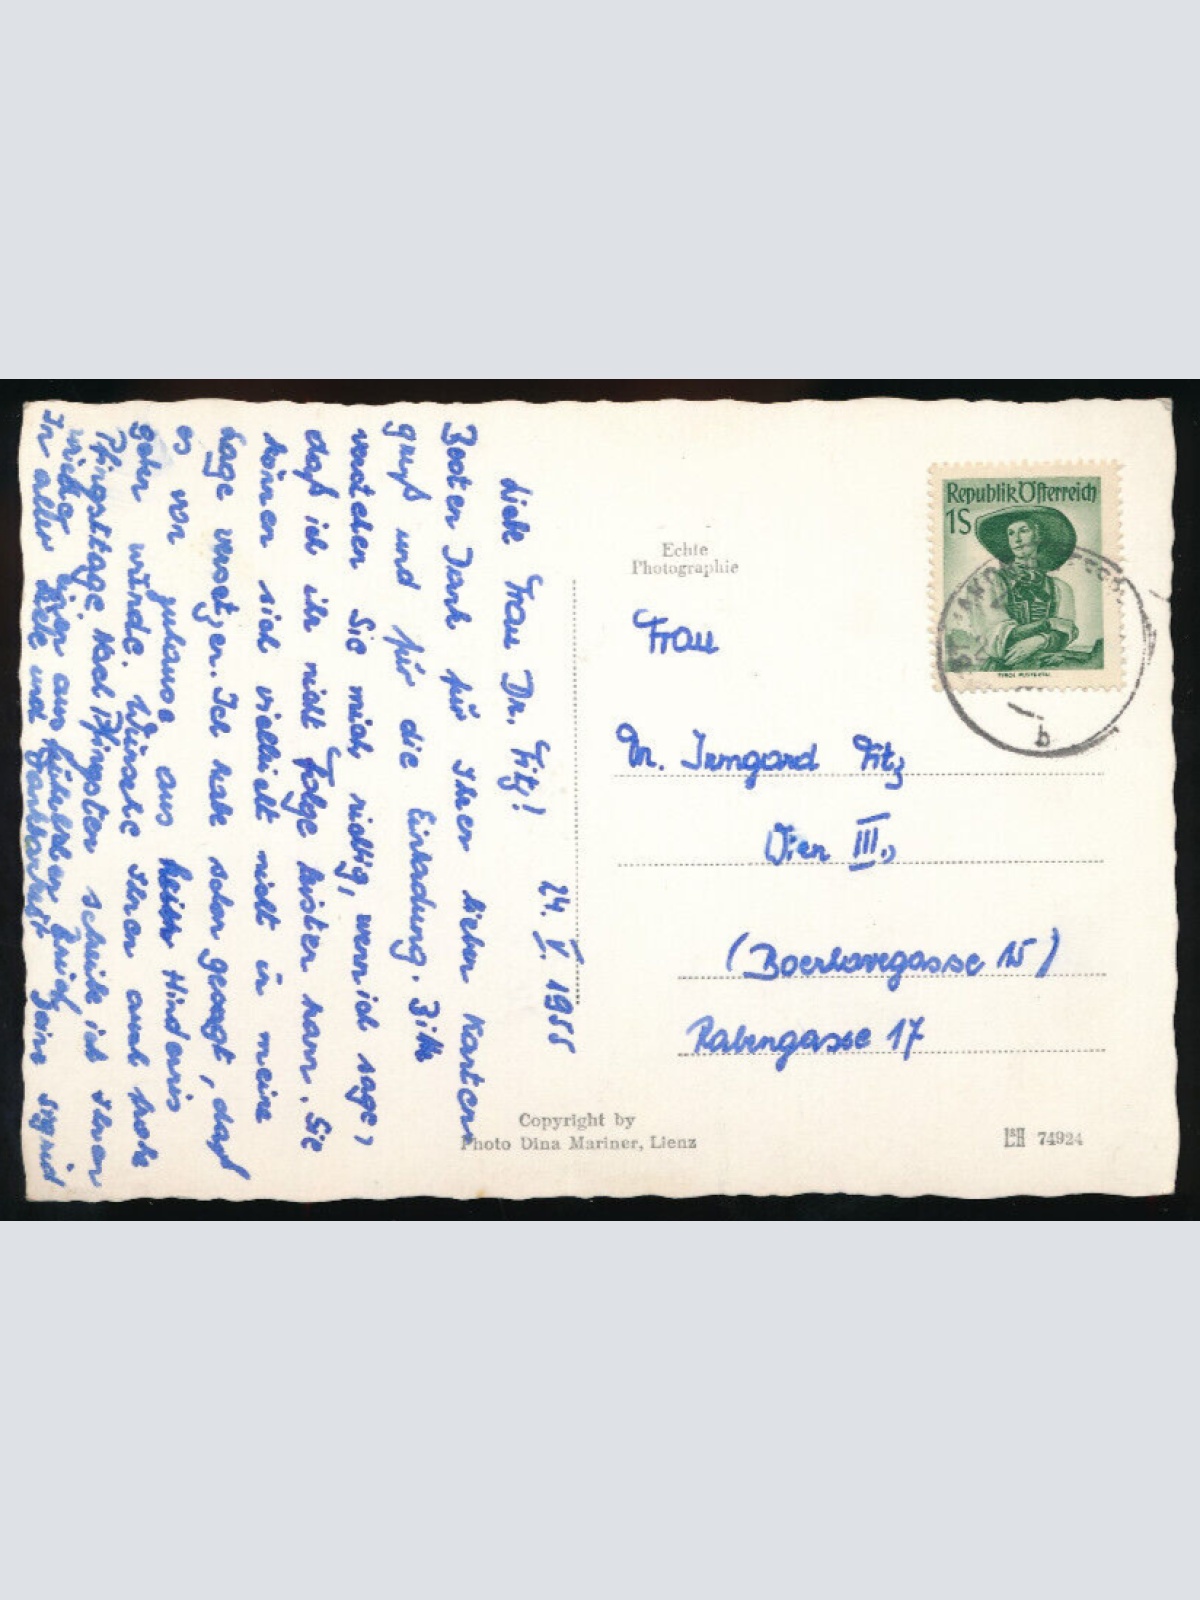 24. V. 1955
Liebe Frau Dr. Fitz!
Besten Dank für Ihren lieben Karten
gruß und für die Einladung. Bitte
verstehen Sie mich richtig, wenn ich sage,
daß ich ihr nicht Folge leisten kann. Sie
können sich vielleicht nicht in meine
Lage versetzen. Ich habe schon gesagt, daß
es von zuhause aus kein Hindernis
gehen würde. Wünsche Ihnen auch frohe
Pfingsttage. Nach Pfingsten schreibe ich Ihnen
wieder einen ausführlichen Brief.
In aller Liebe und Dankbarkeit Sigrid
Echte
Photographie
Republik Österreich
1S
b
Frau
Dr. Irmgard Fitz
Wien III.,
(Boerhavegasse 15)
Rabengasse 17
Copyright by
Photo Dina Mariner, Lienz
74924